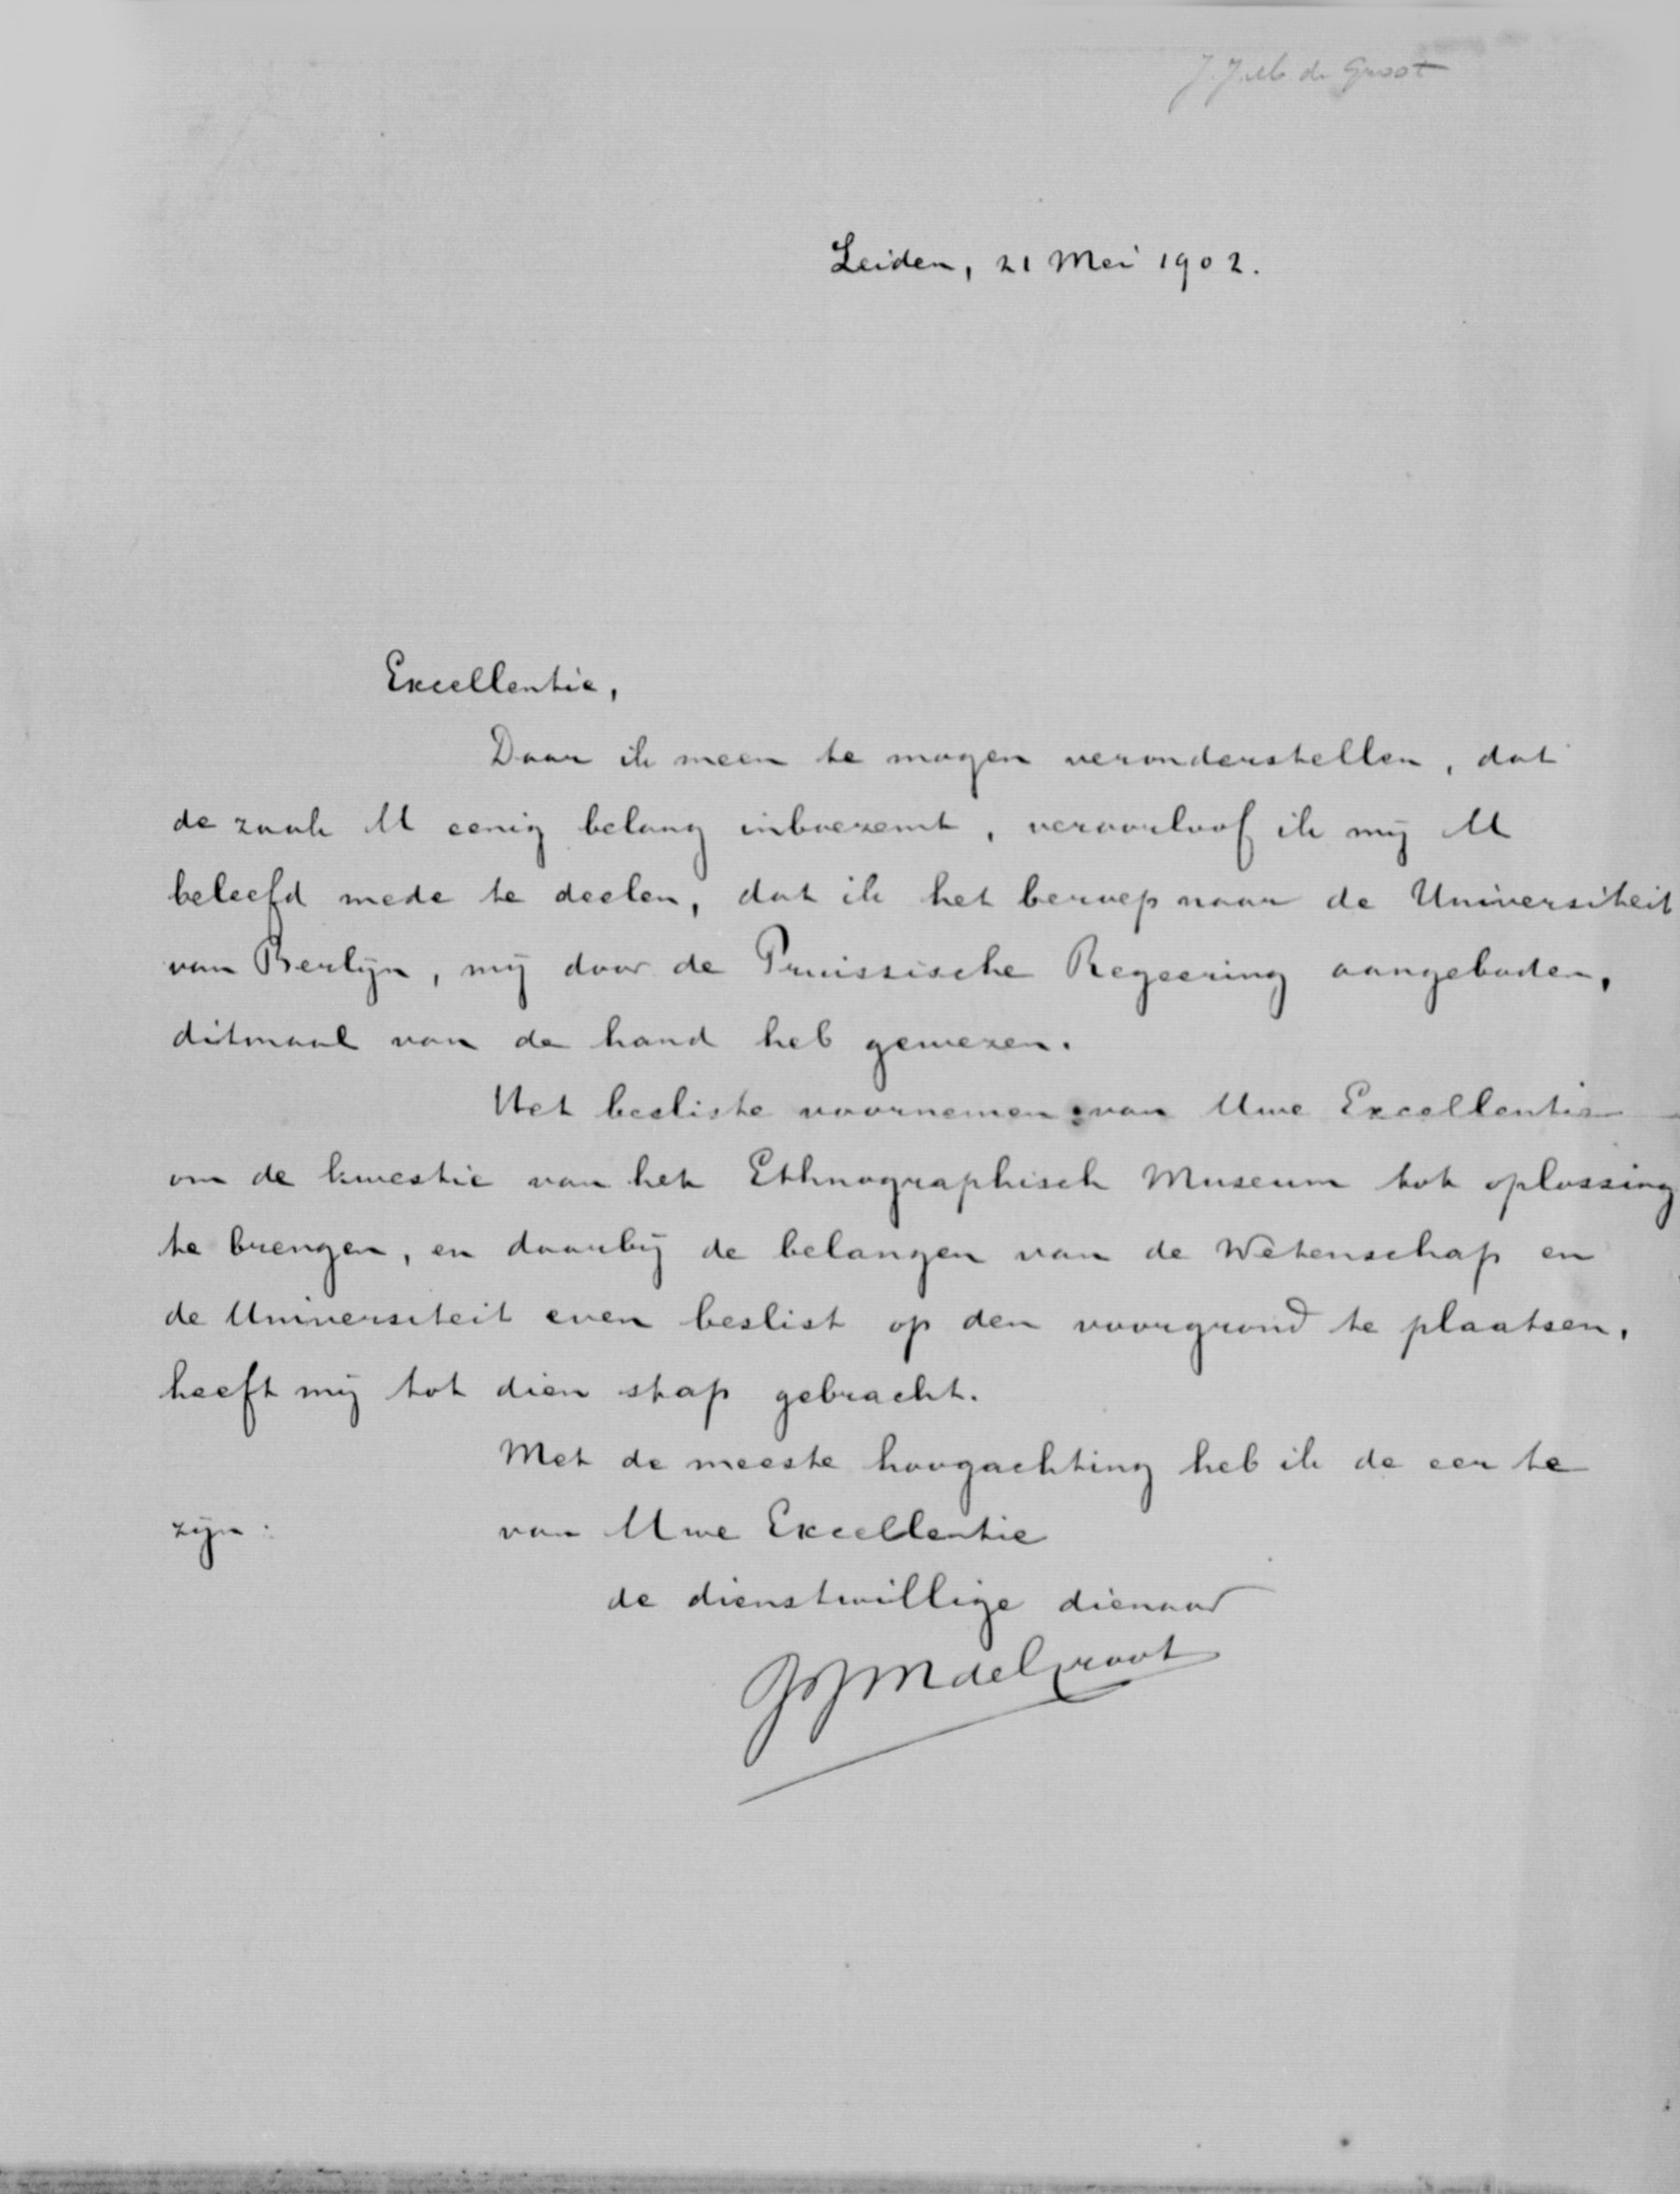 J. J. M. de Groot
Leiden, 21 Mei 1902.
Excellentie,
Daar ik meen te mogen veronderstellen, dat
de zaak U eenig belang inboezemt, veroorloof ik mij U
beleefd mede te deelen, dat ik het beroep naar de Universiteit
van Berlijn, mij door de Pruissische Regeering aangeboden,
ditmaal van de hand heb gewezen.
Het besliste voornemen van Uwe Excellentie
om de kwestie van het Ethnographisch Museum tot oplossing
te brengen, en daarbij de belangen van de Wetenschap en
de Universiteit even beslist op den voorgrond te plaatsen,
heeft mij tot dien stap gebracht.
Met de meeste hoogachting heb ik de eer te
zijn: van Uwe Excellentie
de dienstwillige dienaar
JJM de Groot